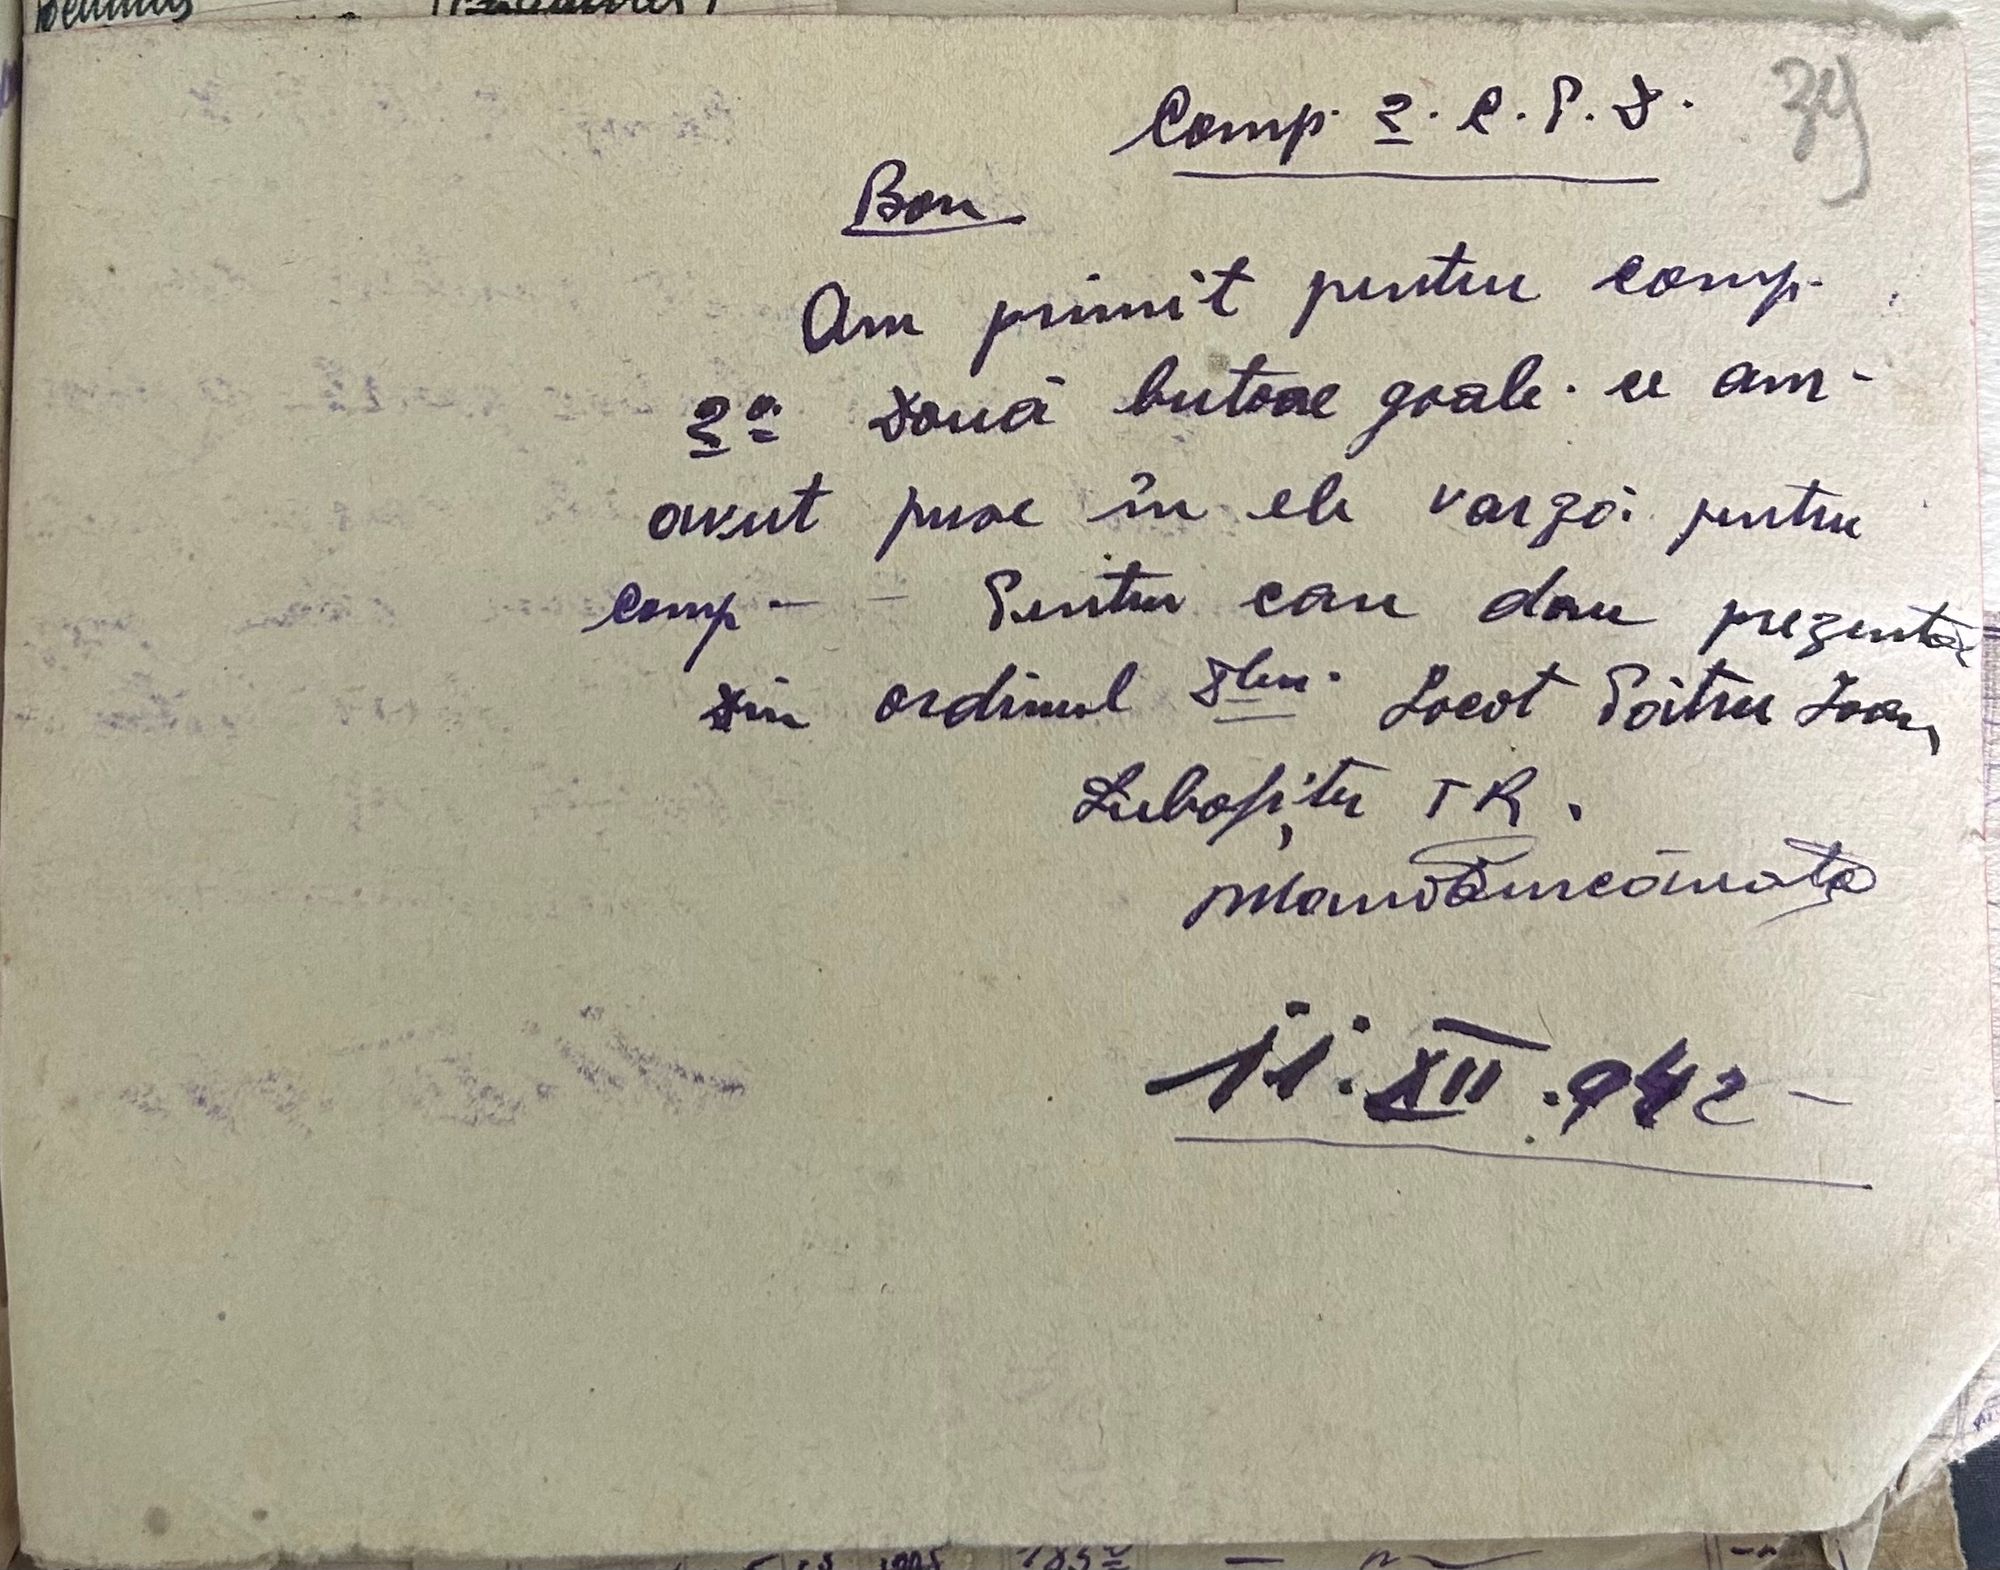 39
Comp. 2. C. P. D.
Bon
Am primit pentru comp.
2a două butoae goale. ce am
avut puse în ele varză pentru
comp - - Pentru care dau prezenta
din ordinul Dlui. Locot Pătru Ioan
TR.
11.XII.942-